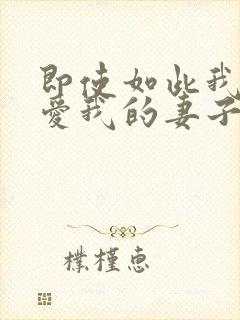 即使如此我
爱我的妻子
朴槿惠